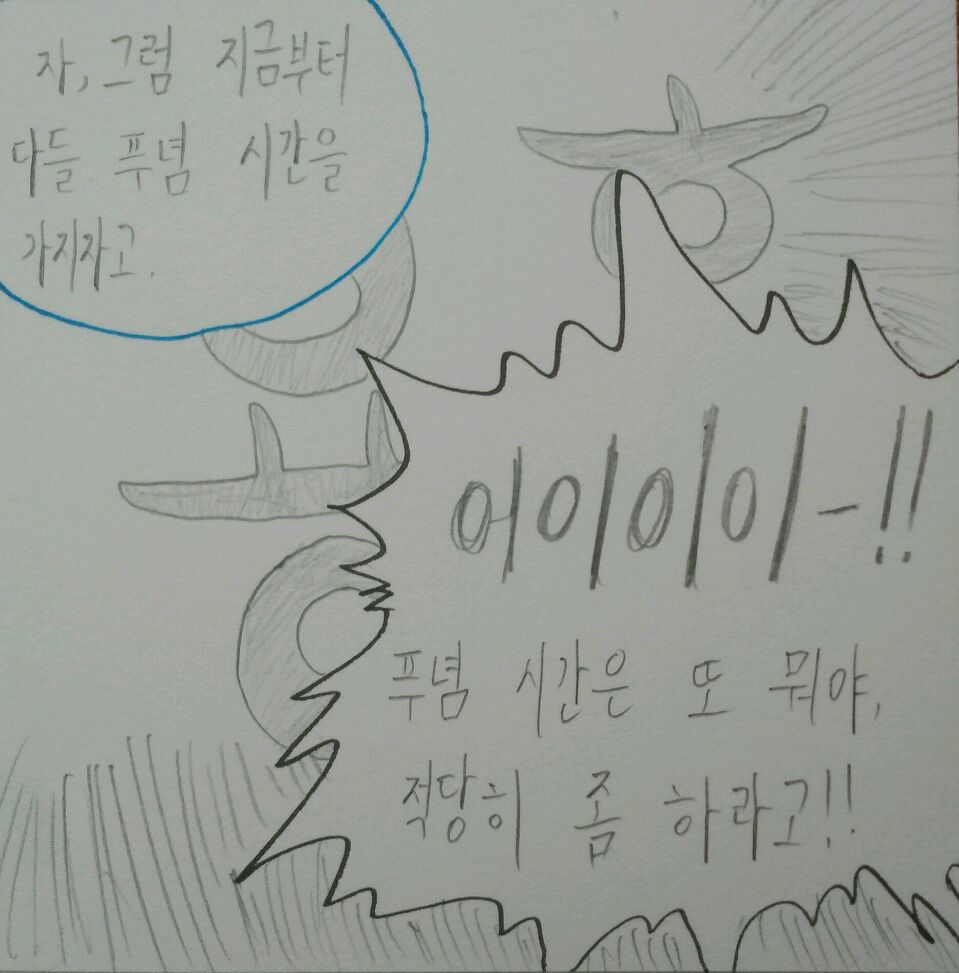 자, 그럼 지금부터
다들 푸념 시간을
가지자고.
어이이이-!!
푸념 시간은 또 뭐야,
적당히 좀 하라고!!